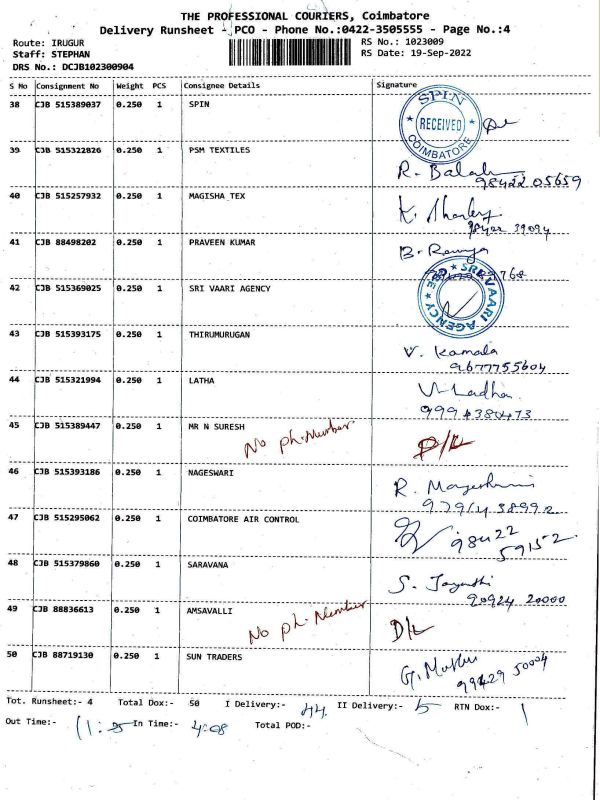 THE PROFESSIONAL COURIERS, Coimbatore
Delivery Runsheet - PCO - Phone No.:0422-3505555 - Page No.:4
Route: IRUGUR
RS No.: 1023009
Staff: STEPHAN
RS Date: 19-Sep-2022
DRS No.: DCJB102300904
S No Consignment No Weight PCS Consignee Details Signature
38 CJB 515389037 0.250 1 SPIN
SPIN RECEIVED COIMBATORE
39 CJB 515322826 0.250 1 PSM TEXTILES
R. Balah
98422 05659
40 CJB 515257932 0.250 1 MAGISHA TEX
K.
41 CJB 88498202 0.250 1 PRAVEEN KUMAR
B. Ramya
42 CJB 515369025 0.250 1 SRI VAARI AGENCY
SRI VAARI AGENCY
43 CJB 515393175 0.250 1 THIRUMURUGAN
V. Kamala
9677755604
44 CJB 515321994 0.250 1 LATHA
9994380473
45 CJB 515389447 0.250 1 MR N SURESH
No ph.Number
D/L
46 CJB 515393186 0.250 1 NAGESWARI
R.
97914 38992
47 CJB 515295062 0.250 1 COIMBATORE AIR CONTROL
98422
59152
48 CJB 515379860 0.250 1 SARAVANA
S. Jayanthi
90924 20000
49 CJB 88836613 0.250 1 AMSAVALLI
No ph.Number
D/L
50 CJB 88719130 0.250 1 SUN TRADERS
G. Muthu
99429 50004
Tot. Runsheet:- 4 Total Dox:- 50 I Delivery:- 44 II Delivery:- 5 RTN Dox:- 1
Out Time:- In Time:- 4:08 Total POD:-